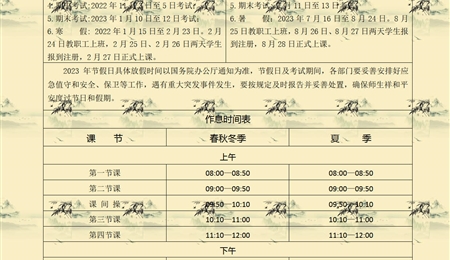 5. 期末考试: 2023年1月10日至12日考试;
6. 寒 假: 2022 年 1 月 15 日至 2 月 23 日。2 月
24 日教职工上班，2 月 25 日、2 月 26 日两天学生
报到注册，2 月 27 日正式上课。
6. 暑 假: 2023 年 7 月 16 日至 8 月 24 日。8 月
25 日教职工上班，8 月 26 日、8 月 27 日两天学生报
到注册，8 月 28 日正式上课。
2023 年节假日具体放假时间以国务院办公厅通知为准，节假日及考试期间，各部门要妥善安排好应
急值守和安全、保卫等工作，遇有重大突发事件发生，要按规定及时报告并妥善处置，确保师生祥和平
安度过节日和假期。
作息时间表
课 节 春秋冬季 夏 季
上午
第一节课 08:00—08:50 08:00—08:50
第二节课 09:00—09:50 09:00—09:50
课 间 操 09:50—10:10 09:50—10:10
第三节课 10:10—11:00 10:10—11:00
第四节课 11:10—12:00 11:10—12:00
下午